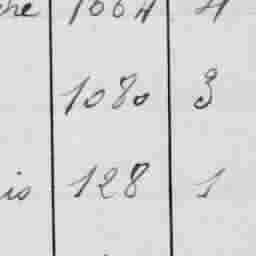 che 1664 4
1080 3
is 128 1